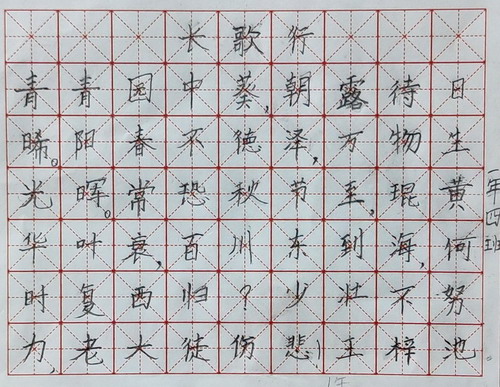 长歌行
青青园中葵,朝露待日
晞。阳春不德泽,万物生
光晖。常恐秋节至,琨黄
华叶衰,百川东到海,何
时复西归?少壮不努
力,老大徒伤悲!王梓池。
一年四班